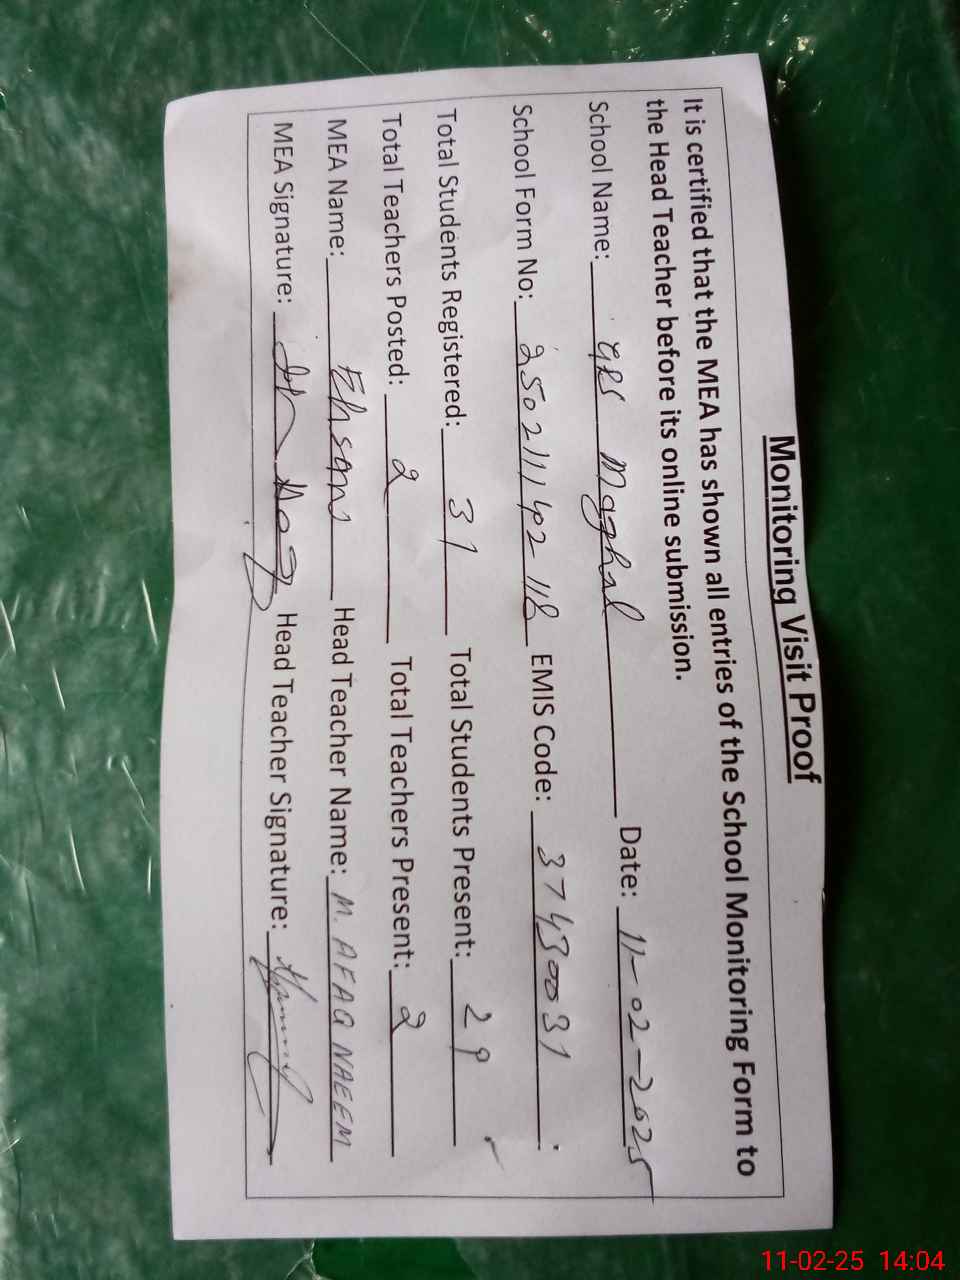 Monitoring Visit Proof
It is certified that the MEA has shown all entries of the School Monitoring Form to
the Head Teacher before its online submission.
School Name: GPS Maghal Date: 11-02-2025
School Form No: 2502111402118 EMIS Code: 37430031
Total Students Registered: 31 Total Students Present: 29
Total Teachers Posted: 2 Total Teachers Present: 2
MEA Name: Ehsan Head Teacher Name: M. AFAQ NAEEM
MEA Signature: Head Teacher Signature:
11-02-25 14:04